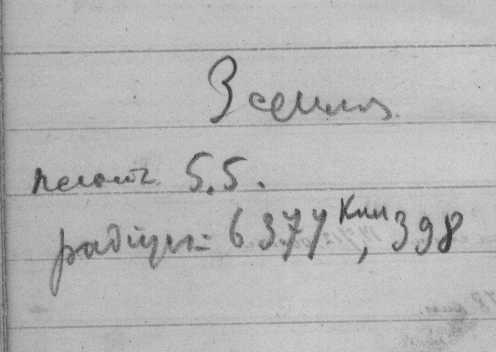 Земля
плотн. 5,5.
радіусъ = 6377 Klm, 398